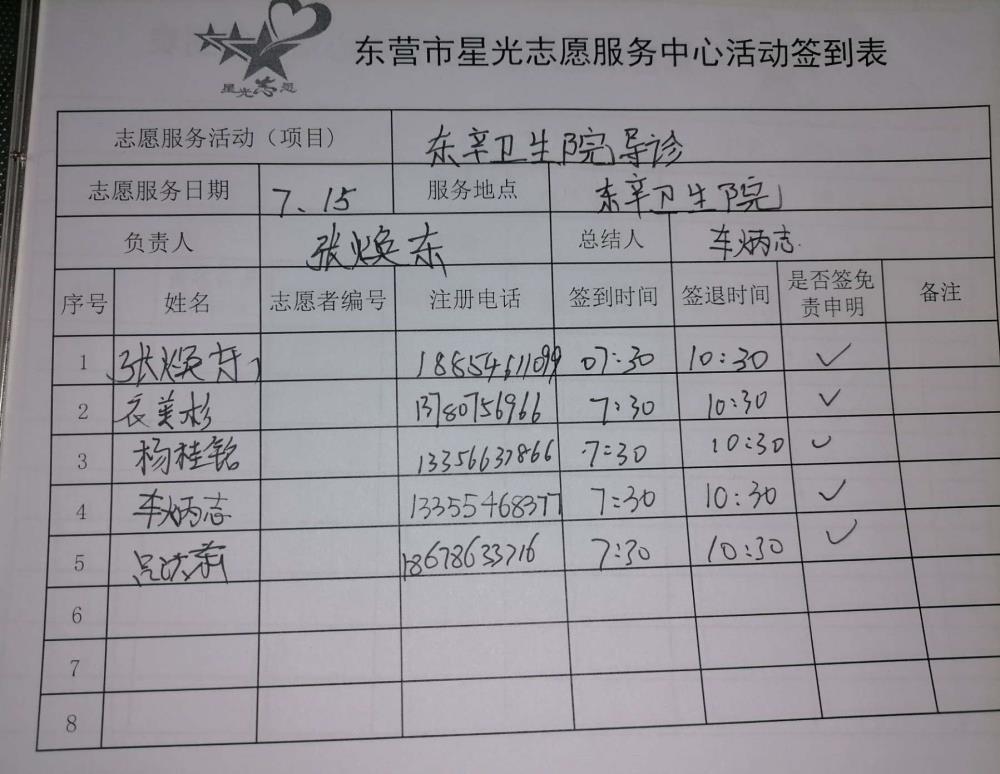 星光志愿
东营市星光志愿服务中心活动签到表
志愿服务活动（项目） 东辛卫生院导诊
志愿服务日期 7、15 服务地点 东辛卫生院
负责人 张焕东 总结人 车炳志
序号 姓名 志愿者编号 注册电话 签到时间 签退时间 是否签免责申明 备注
1 张焕东 18854611099 07:30 10:30 ✓
2 衣美杉 13780756966 7:30 10:30 ✓
3 杨桂铭 13356637866 7:30 10:30 ✓
4 车炳志 13355468377 7:30 10:30 ✓
5 吕 18678633716 7:30 10:30 ✓
6
7
8